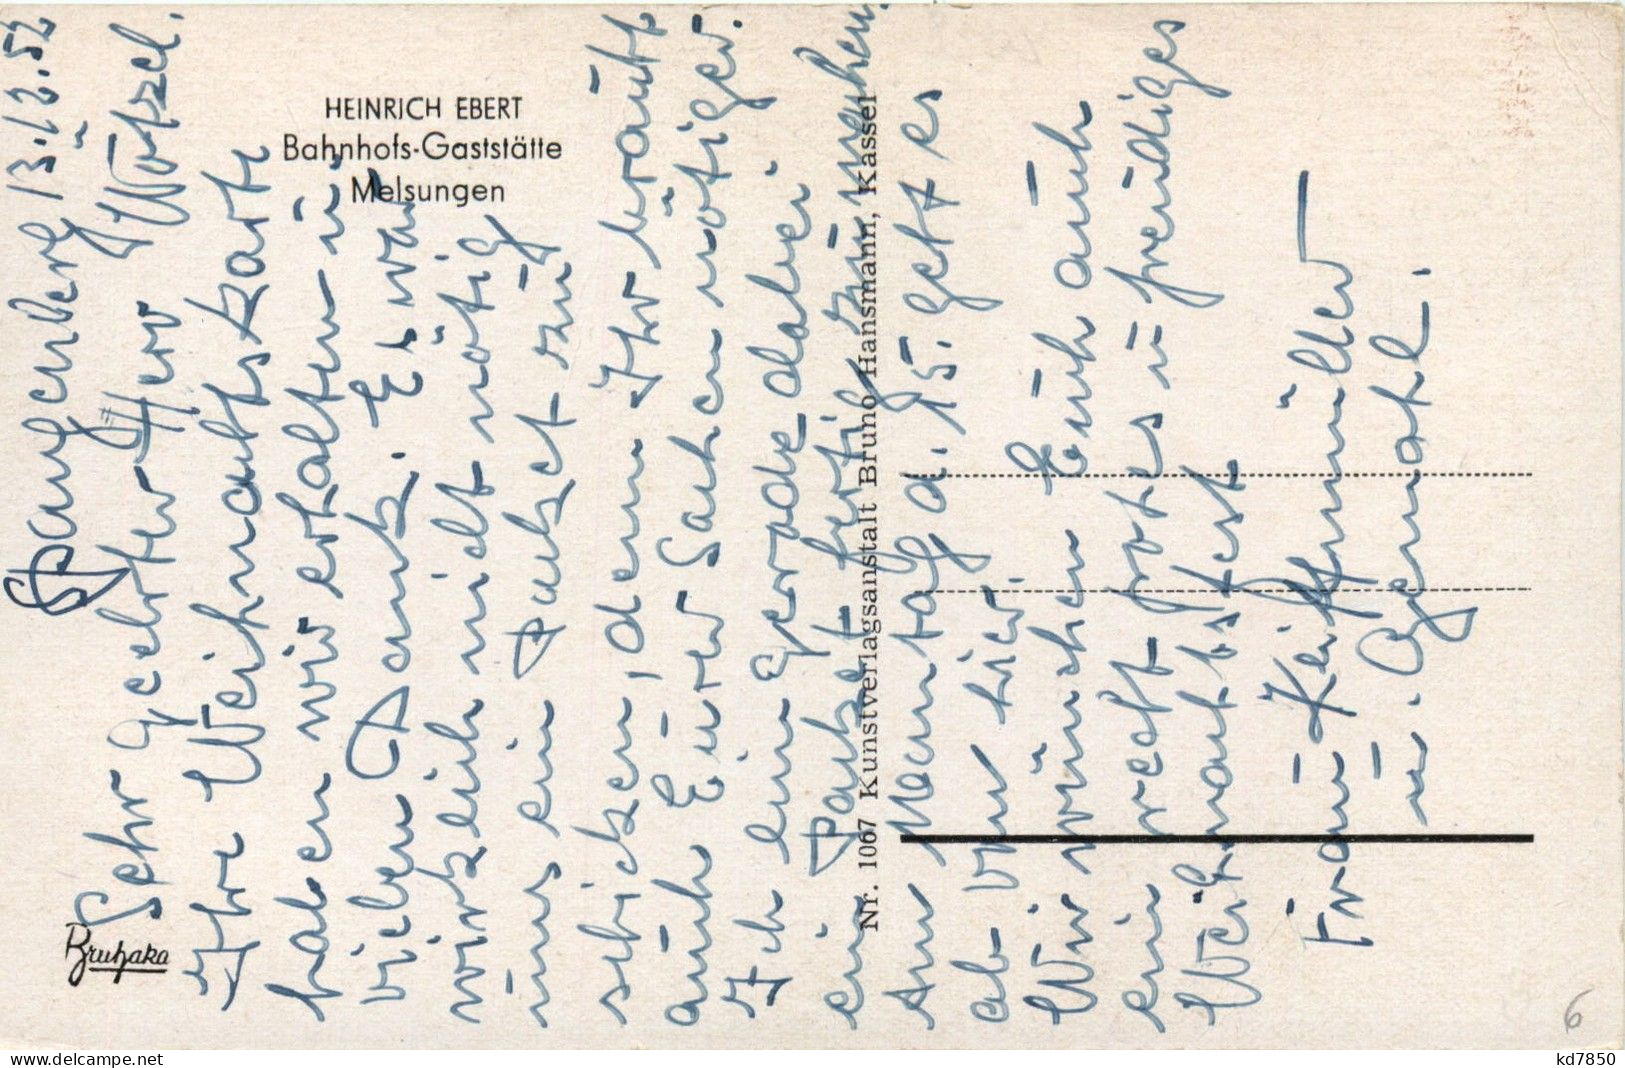 HEINRICH EBERT
Bahnhofs-Gaststätte
Melsungen
Bruhaka
Nr. 1067 Kunstverlagsanstalt Bruno Hansmann, Kassel
Spangenberg 13.12.52
Sehr geehrter Herr Wötzel.
Ihre Weihnachtskarte
haben wir erhalten u.
vielen Dank. Es war
wirklich nicht nötig
uns ein Packet zu
schicken, denn Ihr braucht
auch Eurer Sachen nötiger.
Ich eine gerade dabei
ein Packet fertig zu machen.
Am Montag d. 15. geht es
ab von hier.
Wir wünschen Euch auch
ein recht frohes u freudiges
Weihnachtsfest
Frau Keiffmüller
u. Gemahl.
6
kd7850
delcampe.net